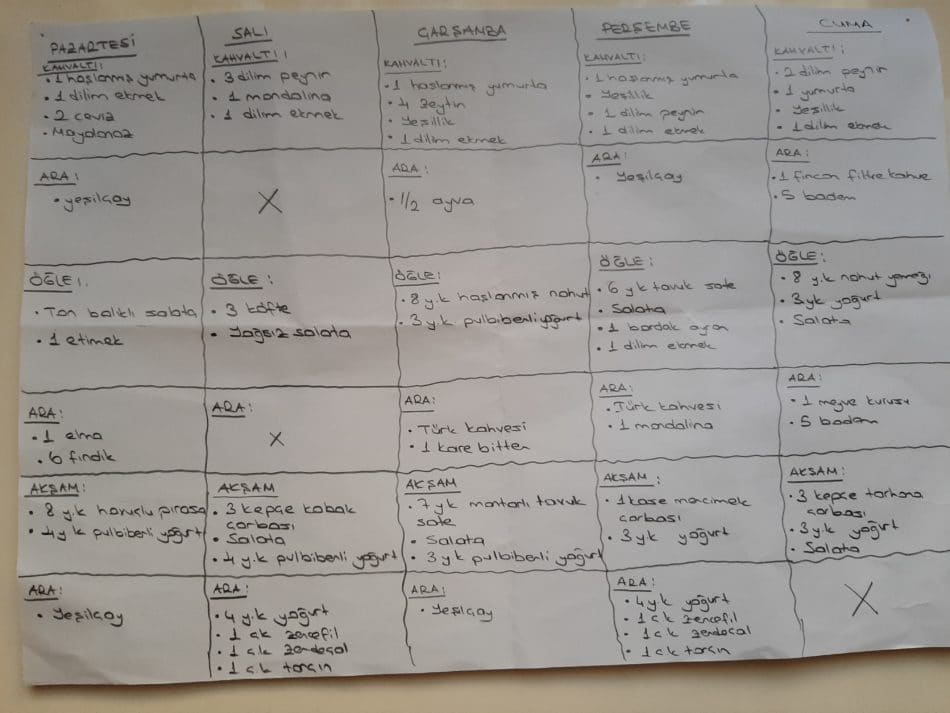 PAZARTESİ
KAHVALTI:
• 1 haşlanmış yumurta
• 1 dilim ekmek
• 2 ceviz
• Maydanoz
ARA:
• yeşilçay
ÖĞLE:
• Ton balıklı salata
• 1 etimek
ARA:
• 1 elma
• 6 fındık
AKŞAM:
• 8 y.k havuçlu pırasa
• 4 y.k pulbiberli yoğurt
ARA:
• Yeşilçay
SALI
KAHVALTI:
• 3 dilim peynir
• 1 mandalina
• 1 dilim ekmek
X
ÖĞLE:
• 3 köfte
• Yağsız salata
ARA:
X
AKŞAM
• 3 kepçe kabak
çorbası
• Salata
• 4 y.k pulbiberli yoğurt
ARA:
• 4 y.k yoğurt
• 1 ç.k zencefil
• 1 ç.k zerdeçal
• 1 ç.k tarçın
ÇARŞAMBA
KAHVALTI:
• 1 haşlanmış yumurta
• 4 zeytin
• Yeşillik
• 1 dilim ekmek
ARA:
• 1/2 ayva
ÖĞLE:
• 8 y.k haşlanmış nohut
• 3 y.k pulbiberli yoğurt
ARA:
• Türk kahvesi
• 1 kare bitter
AKŞAM
• 7 y.k mantarlı tavuk
sote
• Salata
• 3 y.k pulbiberli yoğurt
ARA:
• Yeşilçay
PERŞEMBE
KAHVALTI:
• 1 haşlanmış yumurta
• Yeşillik
• 1 dilim peynir
• 1 dilim ekmek
ARA:
• Yeşilçay
ÖĞLE:
• 6 y.k tavuk sote
• Salata
• 1 bardak ayran
• 1 dilim ekmek
ARA:
• Türk kahvesi
• 1 mandalina
AKŞAM:
• 1 kase mercimek
çorbası
• 3 y.k yoğurt
ARA:
• 4 y.k yoğurt
• 1 ç.k zencefil
• 1 ç.k zerdeçal
• 1 ç.k tarçın
CUMA
KAHVALTI:
• 2 dilim peynir
• 1 yumurta
• Yeşillik
• 1 dilim ekmek
ARA:
• 1 fincan filtre kahve
• 5 badem
ÖĞLE:
• 8 y.k nohut yemeği
• 3 y.k yoğurt
• Salata
ARA:
• 1 meyve kurusu
• 5 badem
AKŞAM:
• 3 kepçe tarhana
çorbası
• 3 y.k yoğurt
• Salata
X